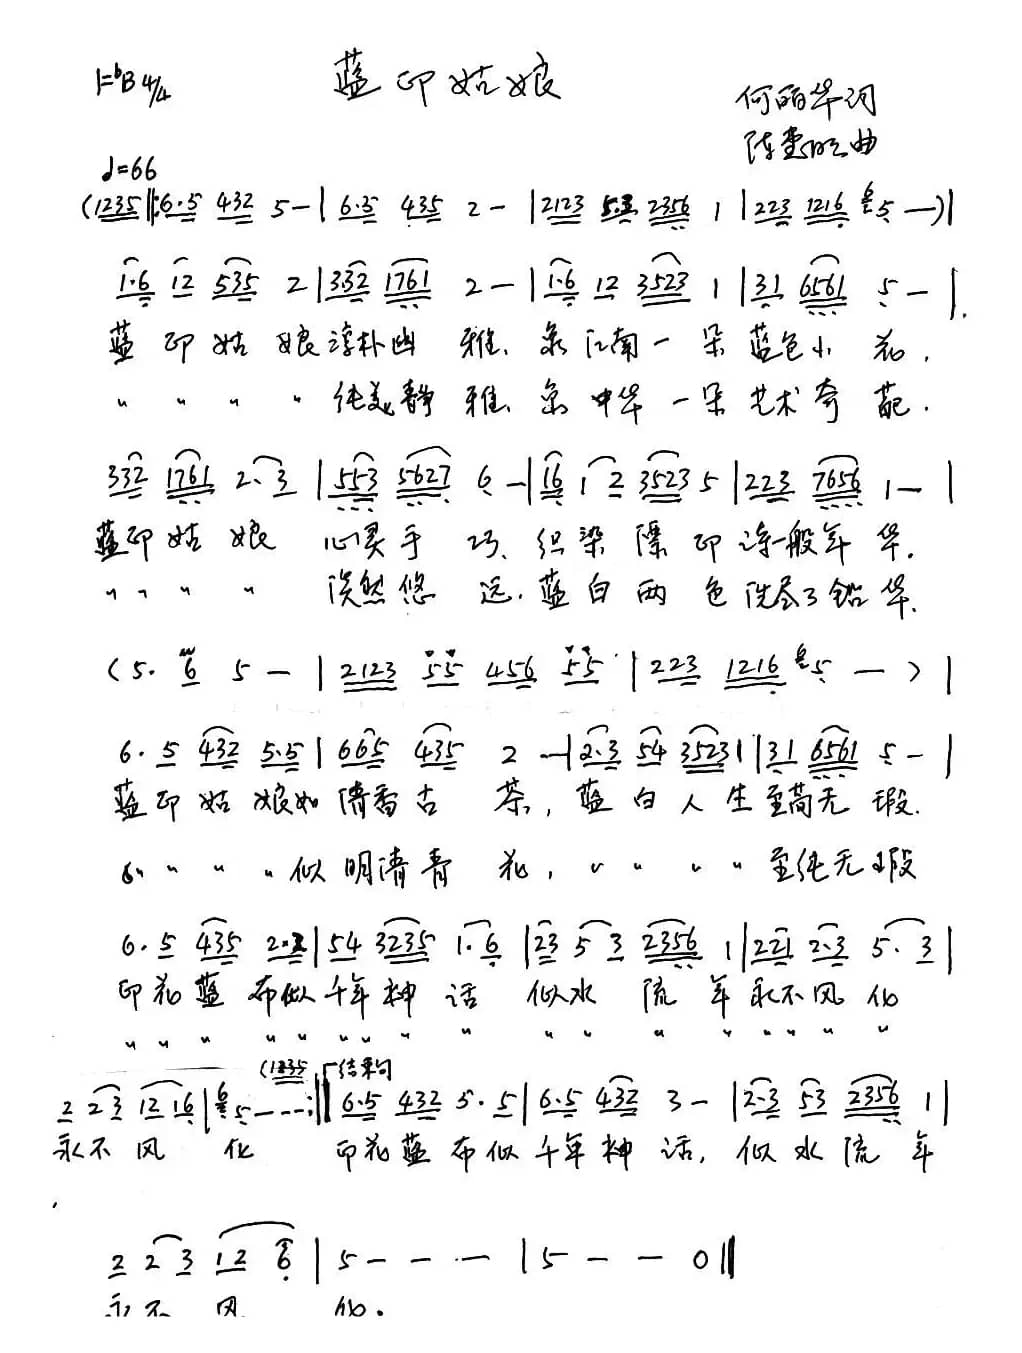 蓝印姑娘
1=ᵇB 4/4
何丽华词
陈 曲
♩=66
(1235‖:6·5 432 5-|6·5 435 2-|2123 5·3 2356 1|223 1216 6 5 —)|
1·6 12 535 2|332 1761 2-|1·6 12 3523 1|31 6561 5-|
蓝印姑娘淳朴幽雅、象江南一朵蓝色小花,
〃 〃 〃 〃 纯美静雅、象中华一朵艺术奇葩.
332 1761 2·3|553 5627 6-|16 1 2 3523 5|223 7656 1—|
蓝印姑娘 心灵手巧、织染漂印诗一般年华.
〃 〃 〃 〃 淡然悠远.蓝白两色洗尽了铅华.
(5· 6 5 -|2123 55 456 55|223 1216 6 5 — )|
6·5 432 5·5|665 435 2 —|2·3 54 3523 1|31 6561 5-|
蓝印姑娘如清香古茶,蓝白人生至高无瑕.
〃 〃 〃 〃似明清青花,〃 〃 〃 〃 至纯无瑕
6·5 435 2·3|54 3235 1·6|23 5 3 2356 1|221 2·3 5·3|
印花蓝布似千年神话 似水流年永不风化
〃 〃 〃 〃 〃 〃 〃 〃 〃 〃 〃 〃 〃 〃 〃 〃 〃
(1235 结束句
2 23 12 16|6 5---:‖6·5 432 5·5|6·5 432 3-|2·3 53 2356 1|
永不风化 印花蓝布似千年神话,似水流年
2 2 3 12 6|5 - - -|5 - - 0‖
永不风化.